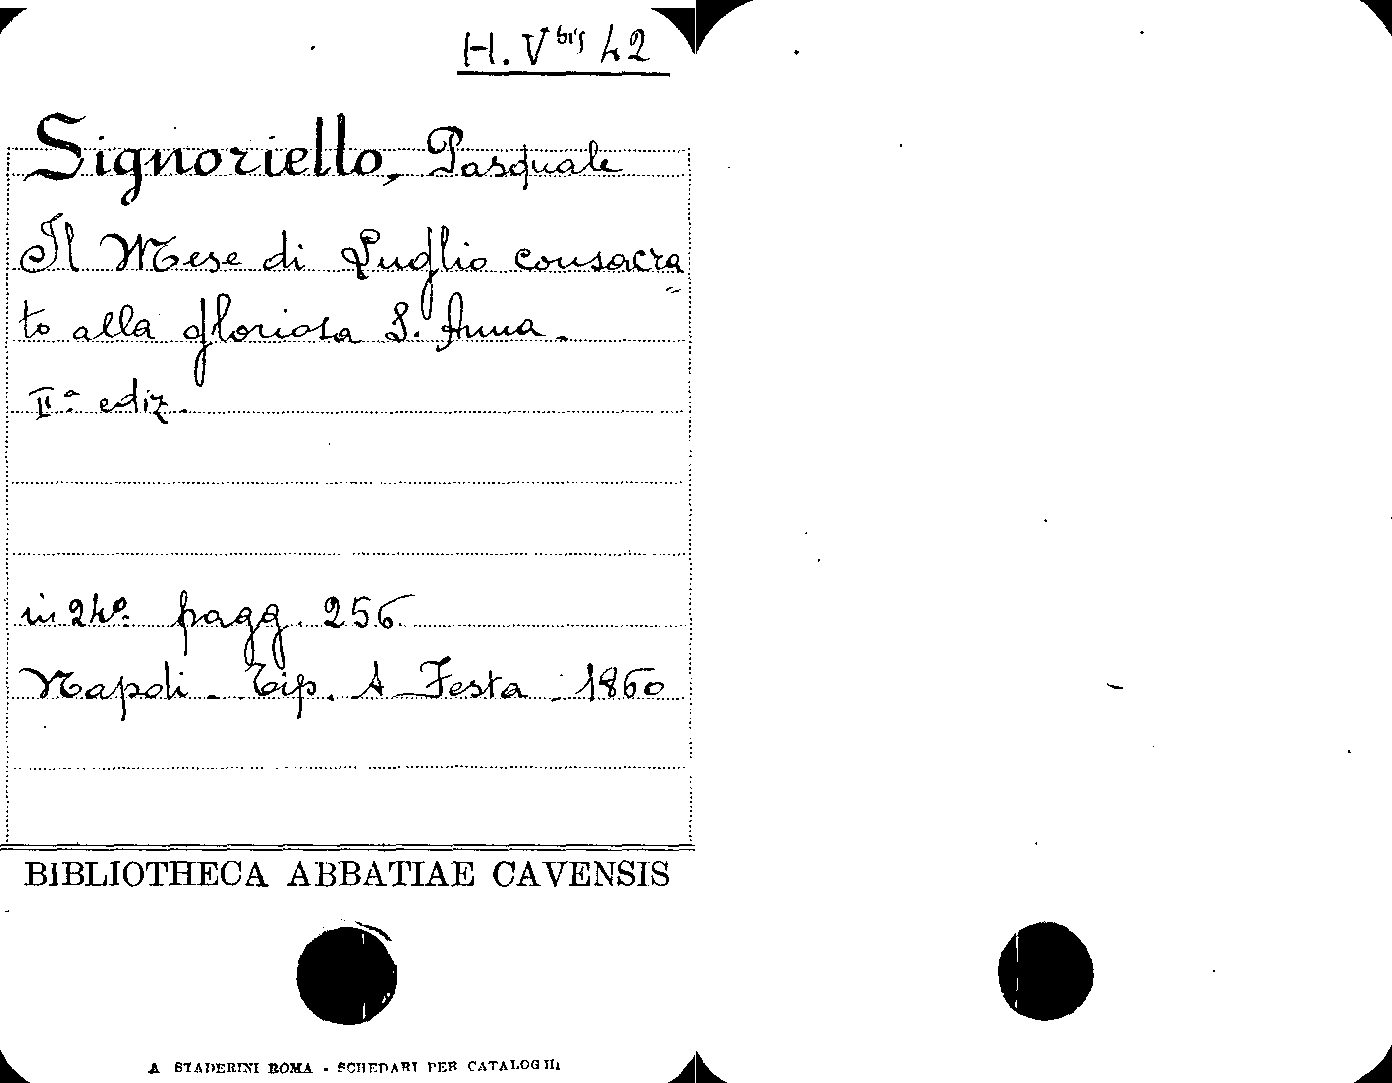 H. V bis 42
Signoriello, Pasquale
Il Mese di Luglio consacra
to alla gloriosa S. Anna.
IIª ediz.
in 24º. pagg. 256.
Napoli - Tip. A Festa - 1860
BIBLIOTHECA ABBATIAE CAVENSIS
A STADERINI ROMA - SCHEDARI PER CATALOGHI